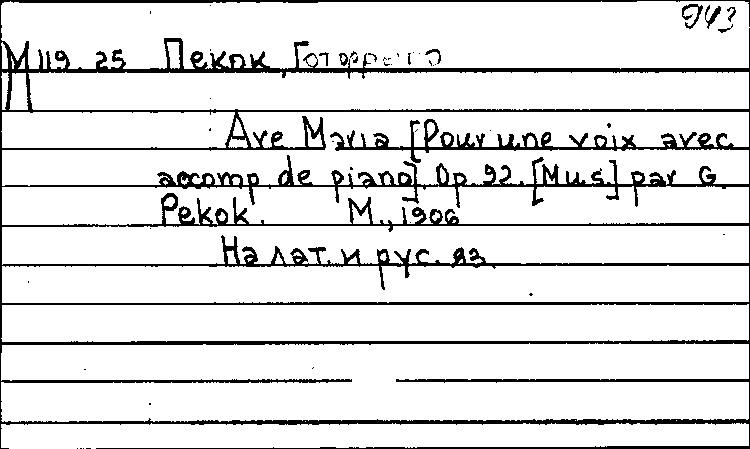 943
М 119.25 Пекок, Готфредо
Ave Maria [Pour une voix avec
accomp. de piano]. Op. 92. [Mus.] par G.
Pekok. М., 1906
На лат. и рус. яз.